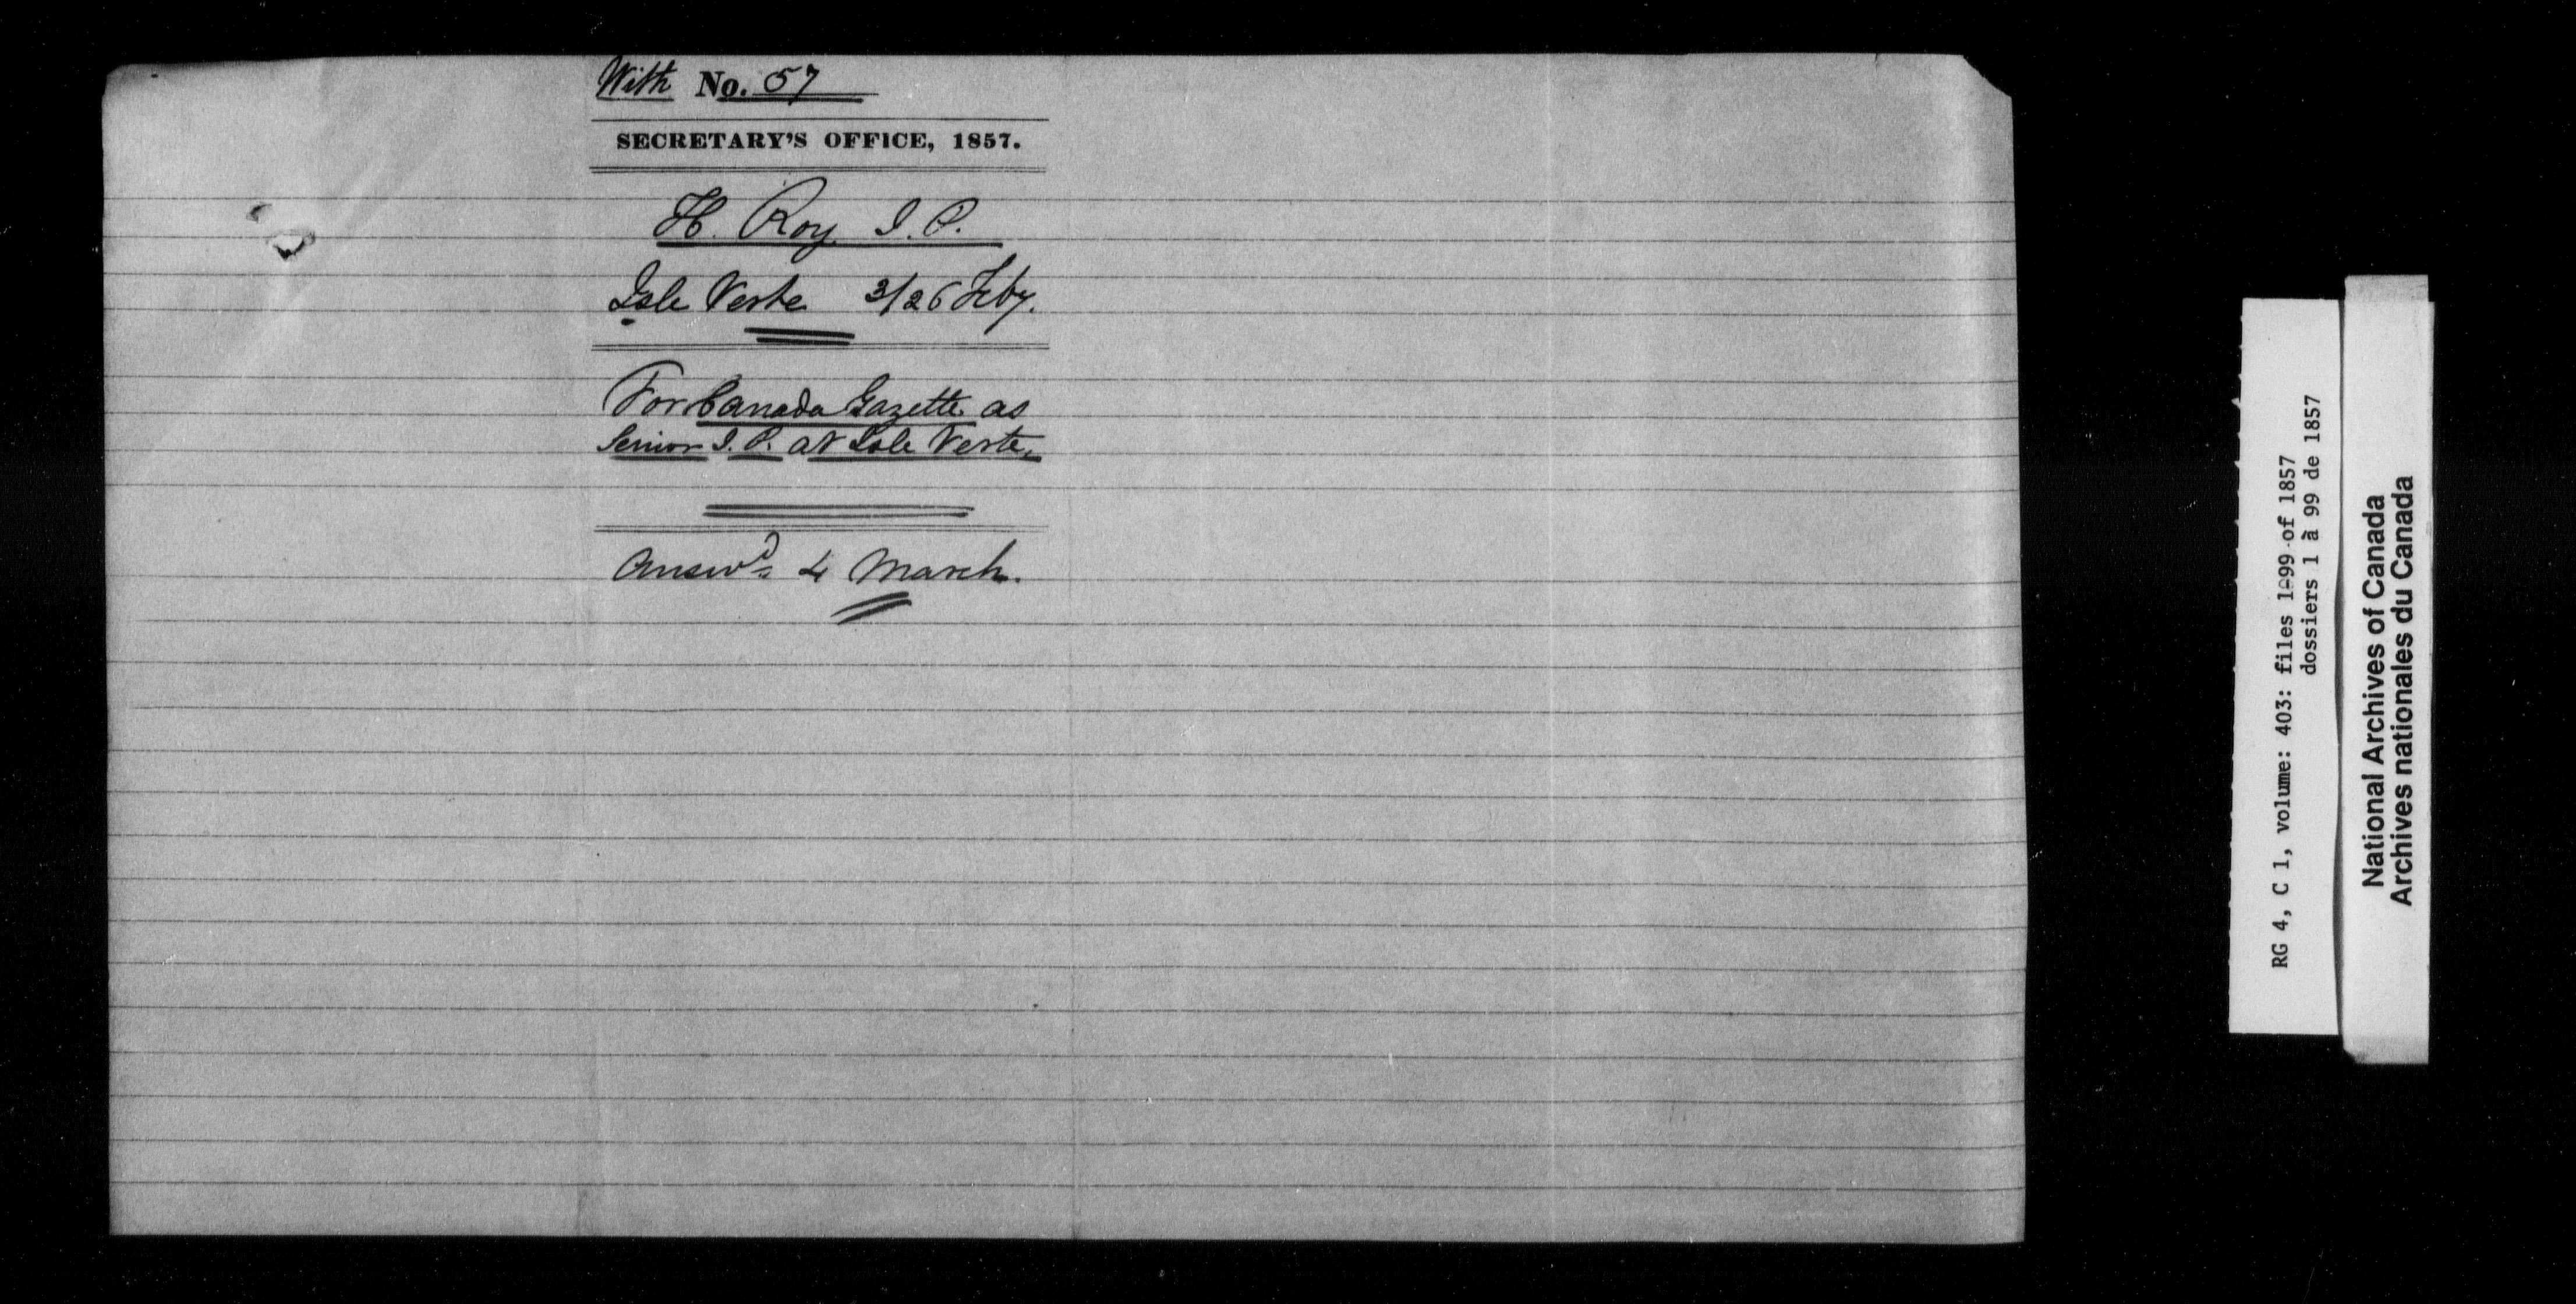 With No. 57
SECRETARY'S OFFICE, 1857.
H. Roy J. P.
Isle Verte 3/26 Feby.
For Canada Gazette as
Senior J. P. at Isle Verte.
Answd 4 March.
RG 4, C 1, volume: 403: files 1-99 of 1857
dossiers 1 à 99 de 1857
National Archives of Canada
Archives nationales du Canada